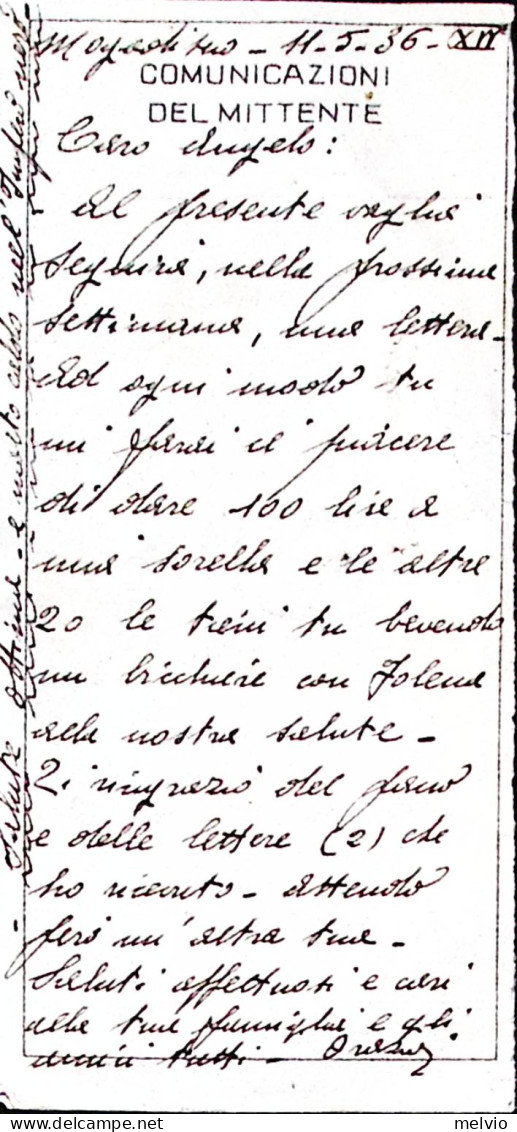 Mogadiscio - 11-5-36-XIV
COMUNICAZIONI
DEL MITTENTE
Caro Angelo:
Al presente vaglia
seguirà, nella prossima
settimana, una lettera -
Ad ogni modo tu
mi farai il piacere
di dare 100 lire a
mia sorella e le altre
20 le tieni tu bevendo
un bicchiere con
alla nostra salute -
Ti ringrazio del
e delle lettere (2) che
ho ricevuto - attendo
però un'altra tua -
Saluti affettuosi e cari
alla tua famiglia e gli
amici tutti -
- Salute ottima - e molto caldo nell'Impero
melvio